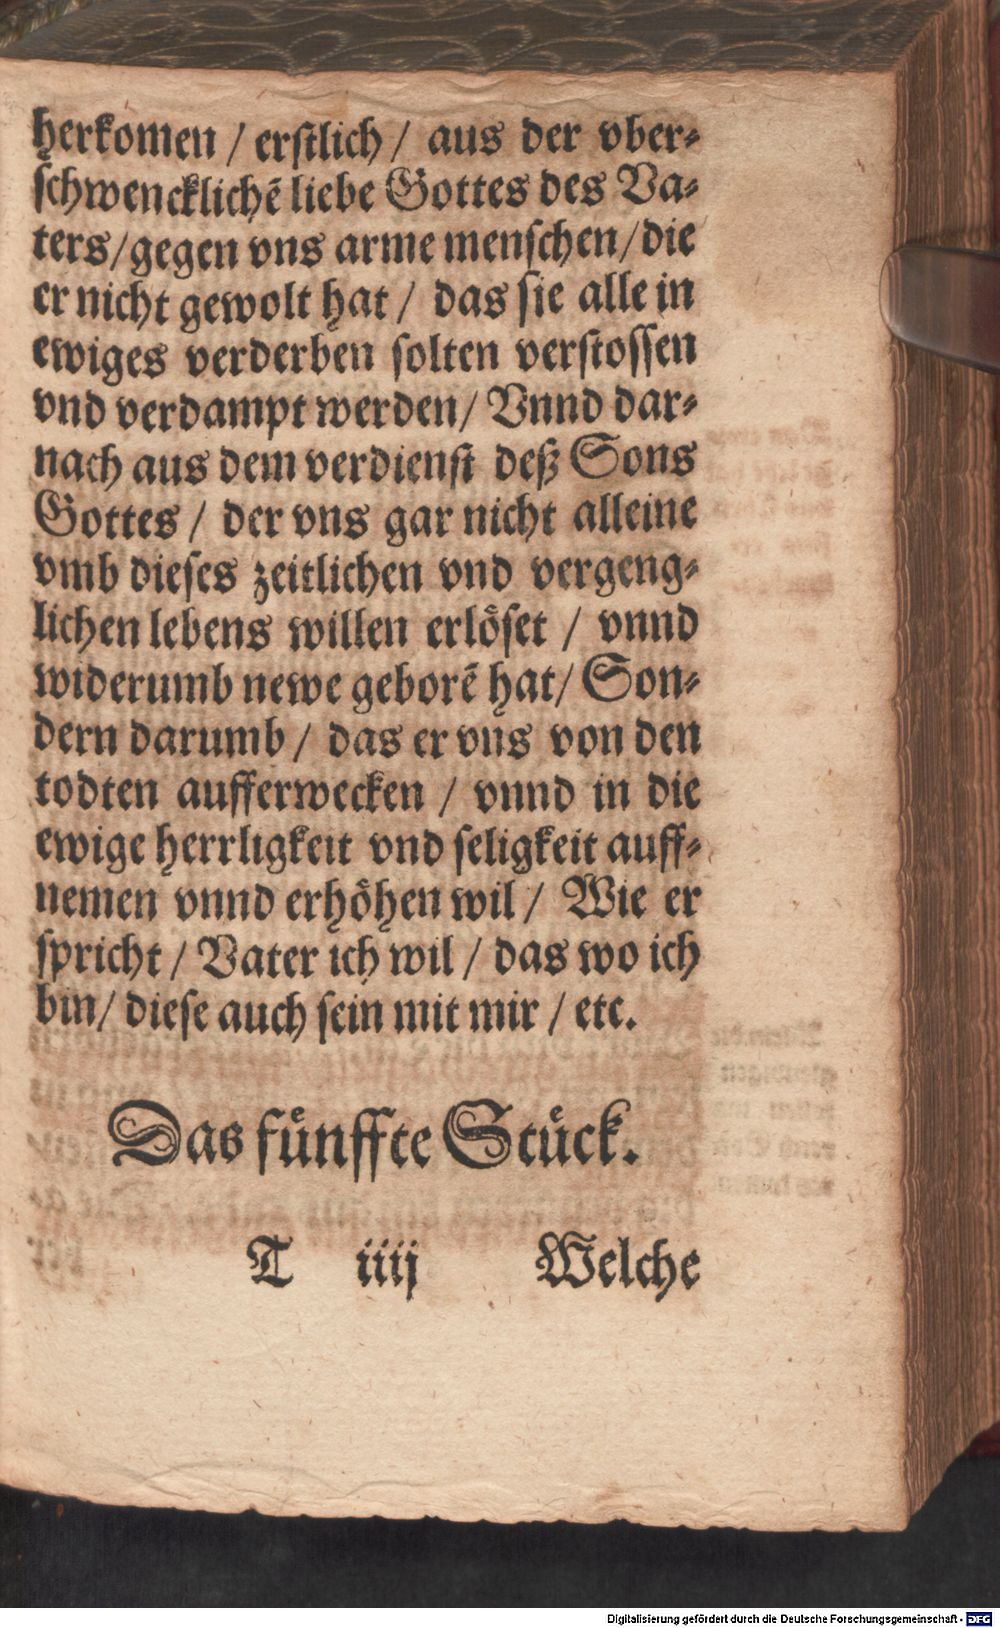 herkomen / erstlich / aus der vber⸗
schwencklichẽ liebe Gottes des Va⸗
ters / gegen vns arme menschen / die
er nicht gewolt hat / das sie alle in
ewiges verderben solten verstossen
vnd verdampt werden / Vnnd dar⸗
nach aus dem verdienst deß Sons
Gottes / der vns gar nicht alleine
vmb dieses zeitlichen vnd vergeng⸗
lichen lebens willen erlöset / vnnd
widerumb newe geborẽ hat / Son⸗
dern darumb / das er vns von den
todten aufferwecken / vnnd in die
ewige herrligkeit vnd seligkeit auff⸗
nemen vnnd erhöhen wil / Wie er
spricht / Vater ich wil / das wo ich
bin / diese auch sein mit mir / etc.
Das fünffte Stück.
T iiij Welche
Digitalisierung gefördert durch die Deutsche Forschungsgemeinschaft - DFG